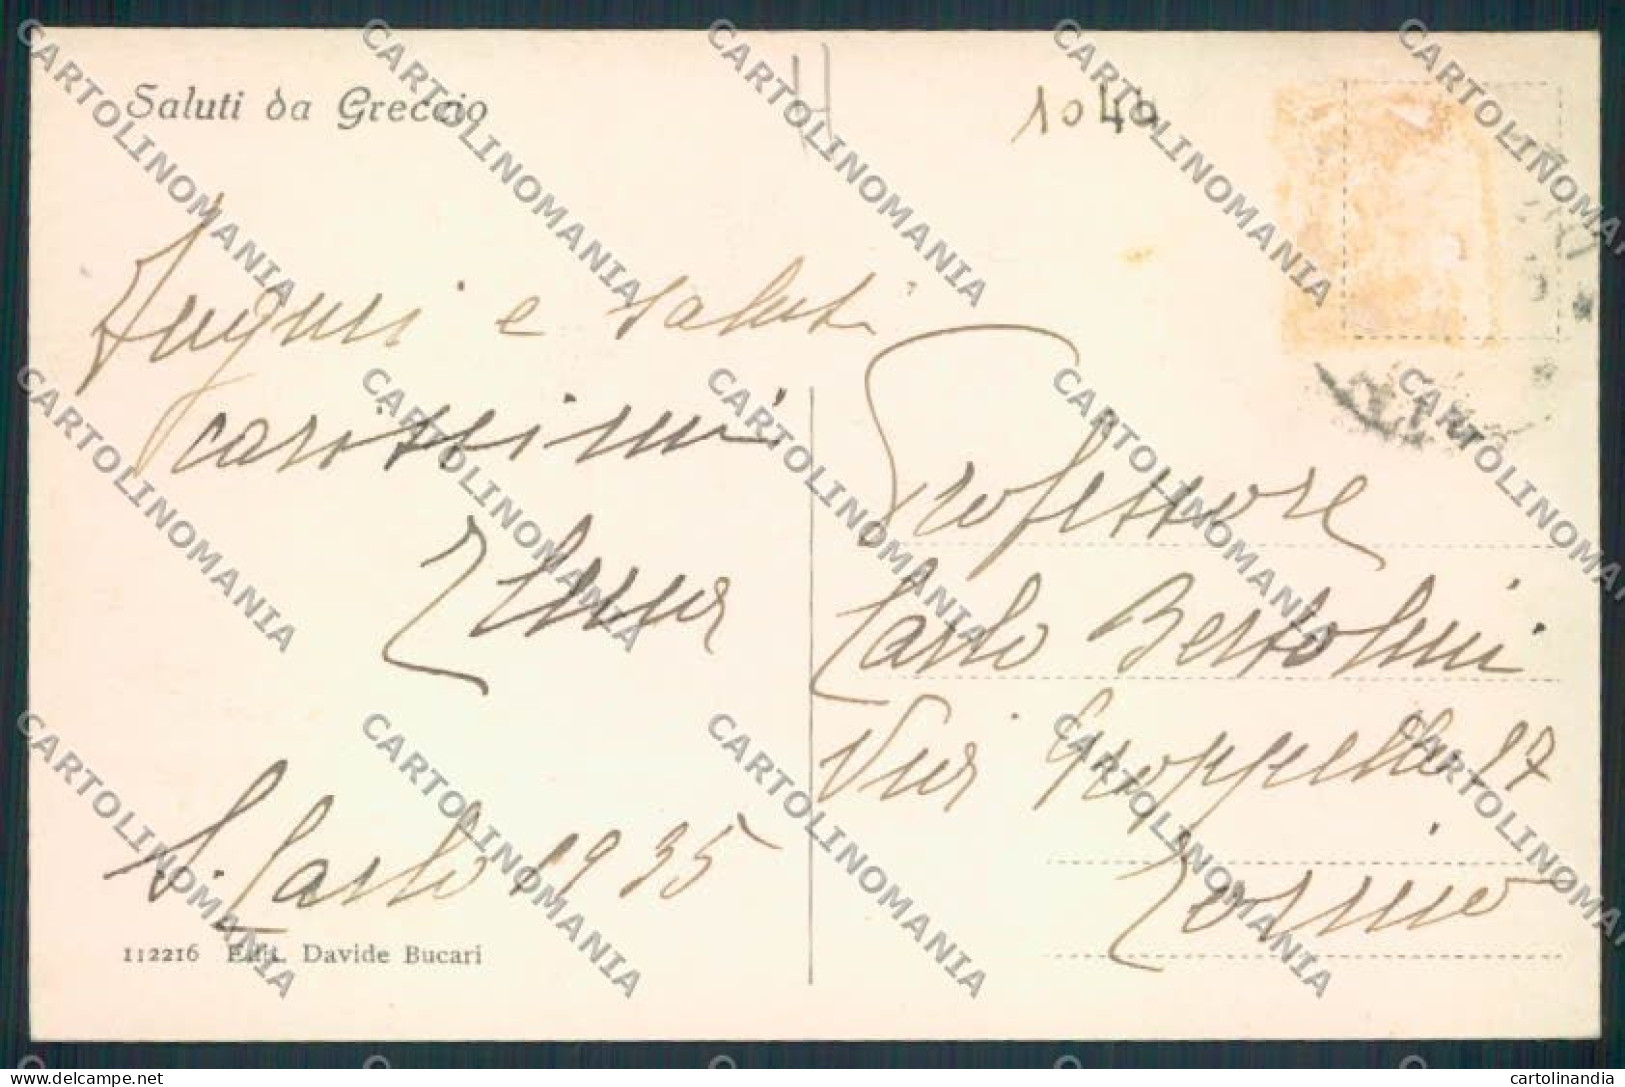 Saluti da Greccio
1040
Auguri e saluti
carissimi
S. Carlo 1935
112216 Edit. Davide Bucari
Professore
Carlo Bertolini
Via 17
Torino
CARTOLINOMANIA
cartolinandia